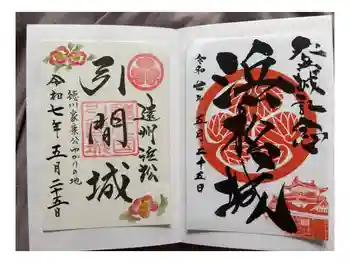 遠州浜松
引間城
徳川家康公ゆかりの地
令和七年五月二十五日
登城記念
浜松城
令和七年五月二十五日